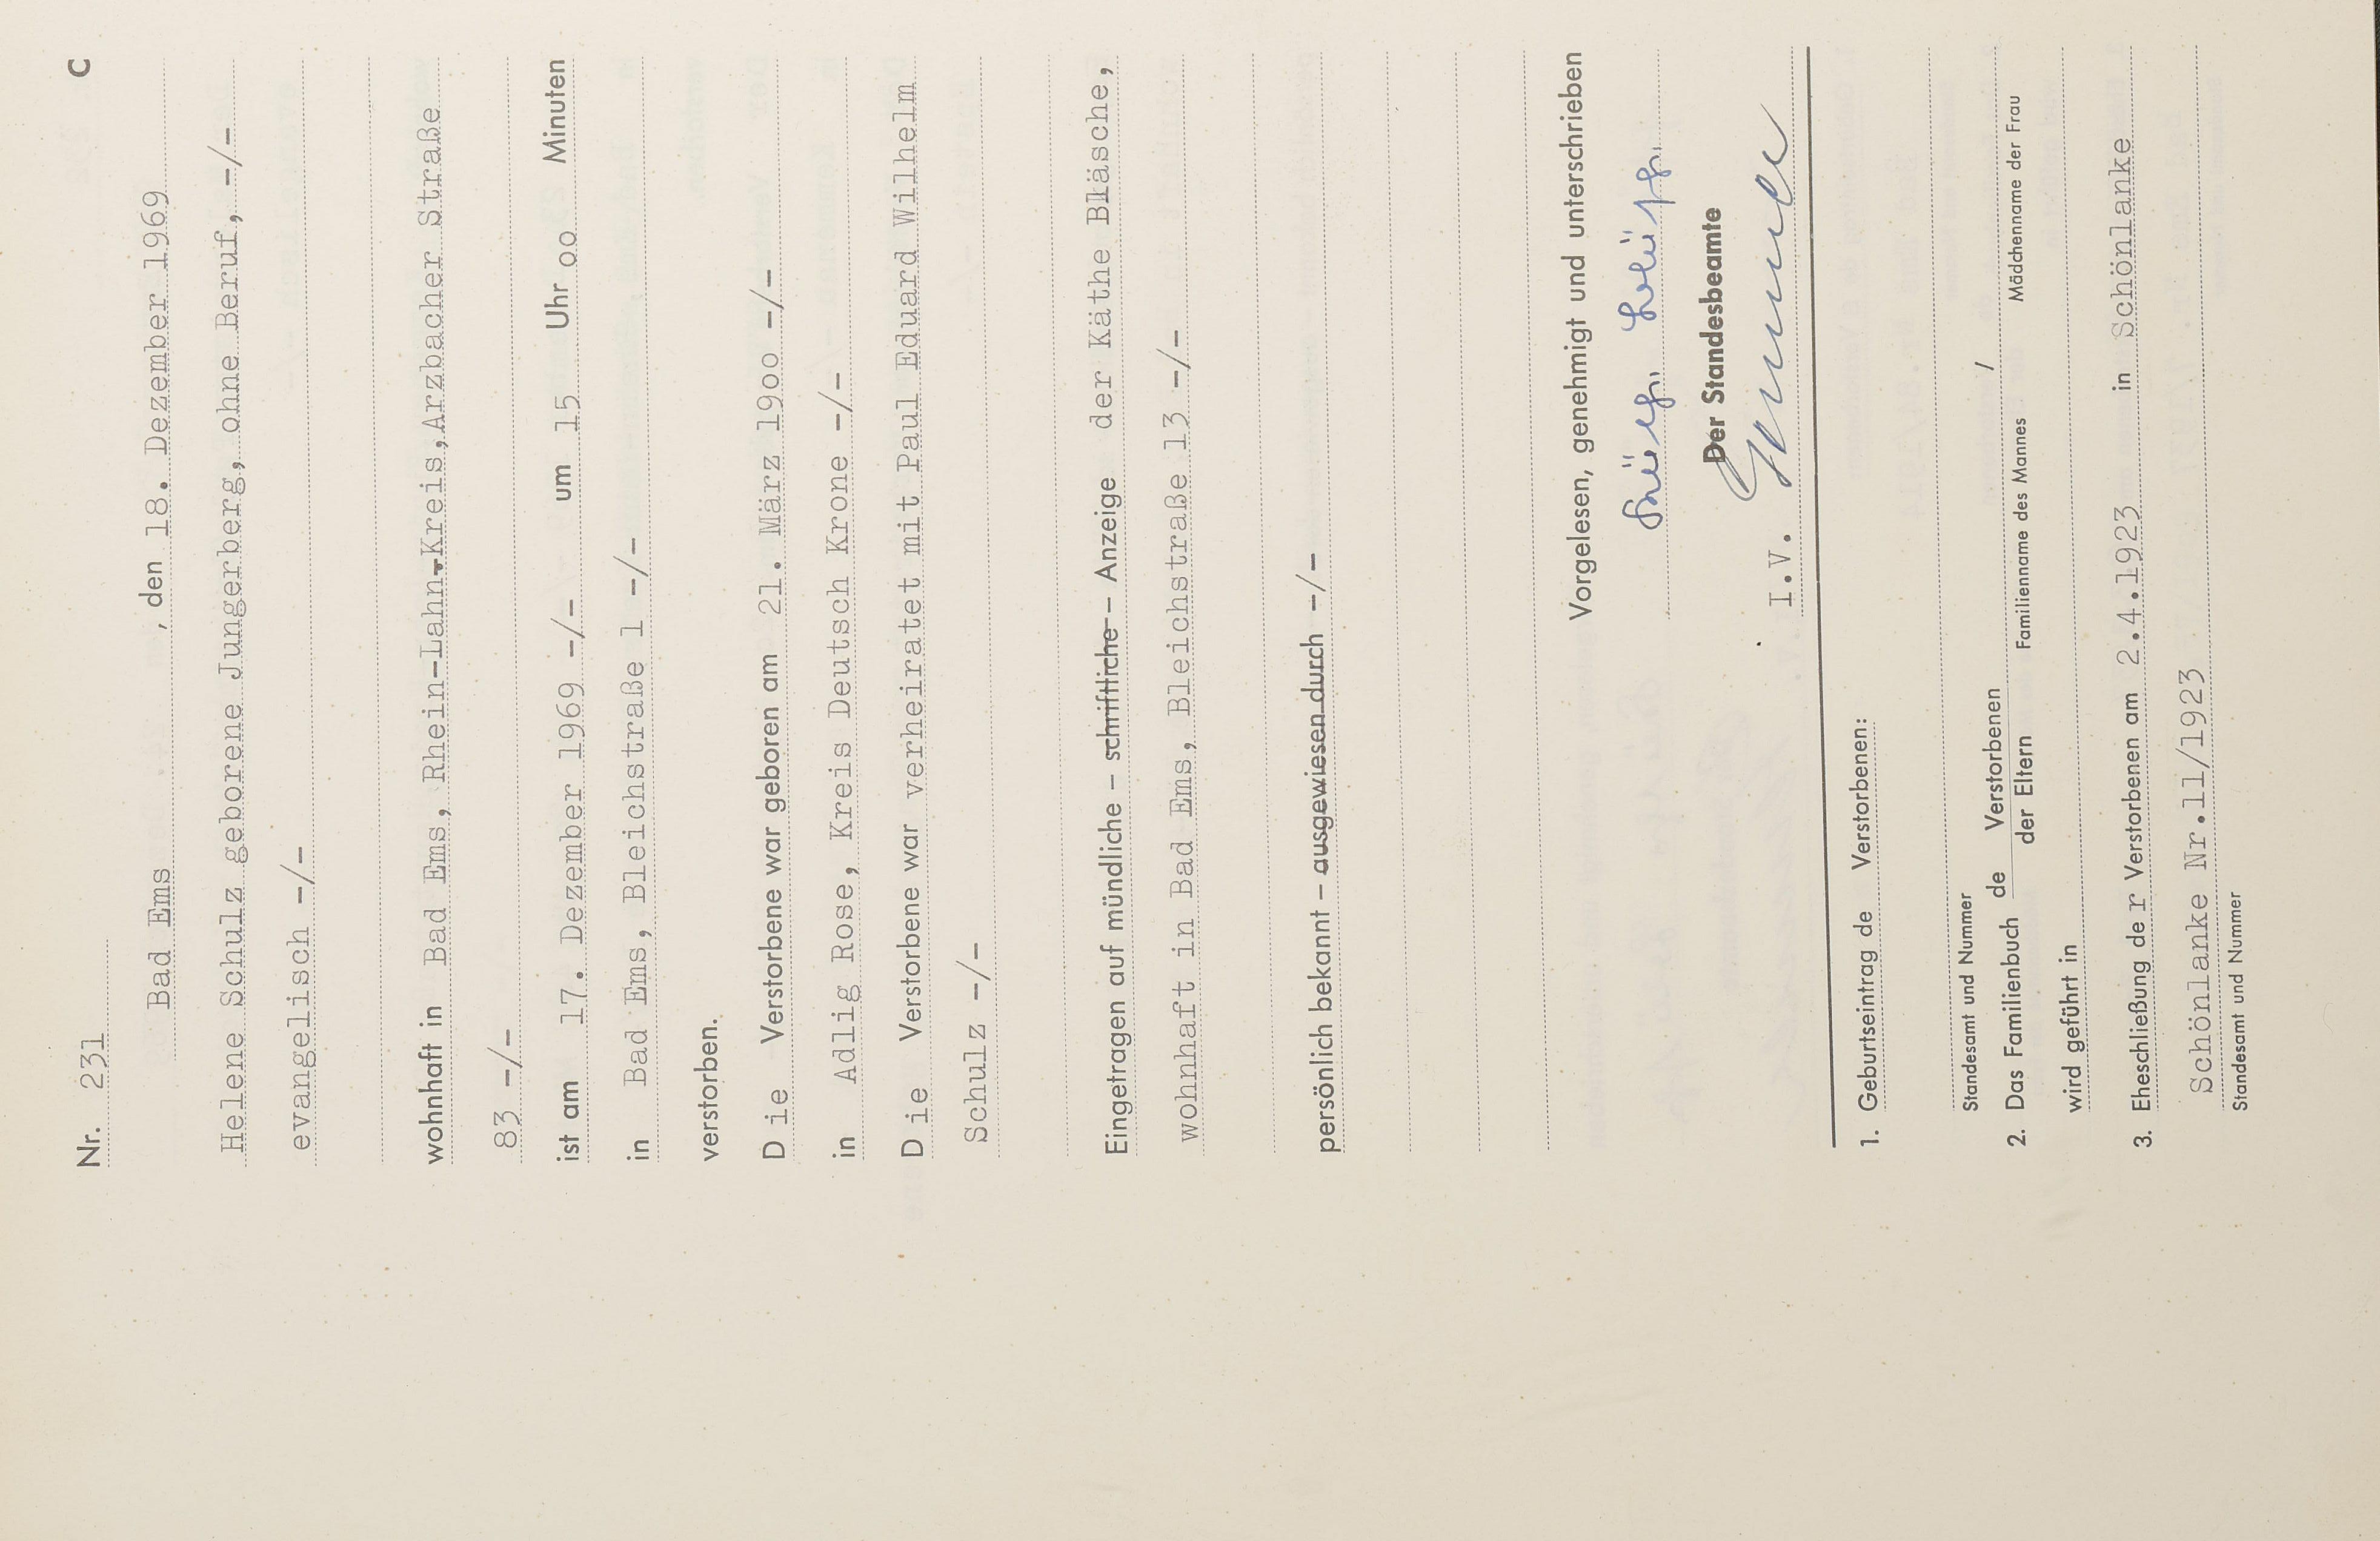 C
Nr. 231
Bad Ems , den 18. Dezember 1969
Helene Schulz geborene Jungerberg, ohne Beruf, -/-
evangelisch -/-
wohnhaft in Bad Ems, Rhein-Lahn-Kreis, Arzbacher Straße
83 -/-
ist am 17. Dezember 1969 -/- um 15 Uhr oo Minuten
in Bad Ems, Bleichstraße 1 -/-
verstorben.
D ie Verstorbene war geboren am 21. März 19oo -/-
in Adlig Rose, Kreis Deutsch Krone -/-
D ie Verstorbene war verheiratet mit Paul Eduard Wilhelm
Schulz -/-
Eingetragen auf mündliche – schriftliche – Anzeige der Käthe Bläsche,
wohnhaft in Bad Ems, Bleichstraße 13 -/-
persönlich bekannt – ausgewiesen durch -/-
Vorgelesen, genehmigt und unterschrieben
Der Standesbeamte
I.V.
1. Geburtseintrag de Verstorbenen:
Standesamt und Nummer
2. Das Familienbuch de Verstorbenen /
der Eltern Familienname des Mannes Mädchenname der Frau
wird geführt in
3. Eheschließung de r Verstorbenen am 2.4.1923 in Schönlanke
Schönlanke Nr.11/1923
Standesamt und Nummer